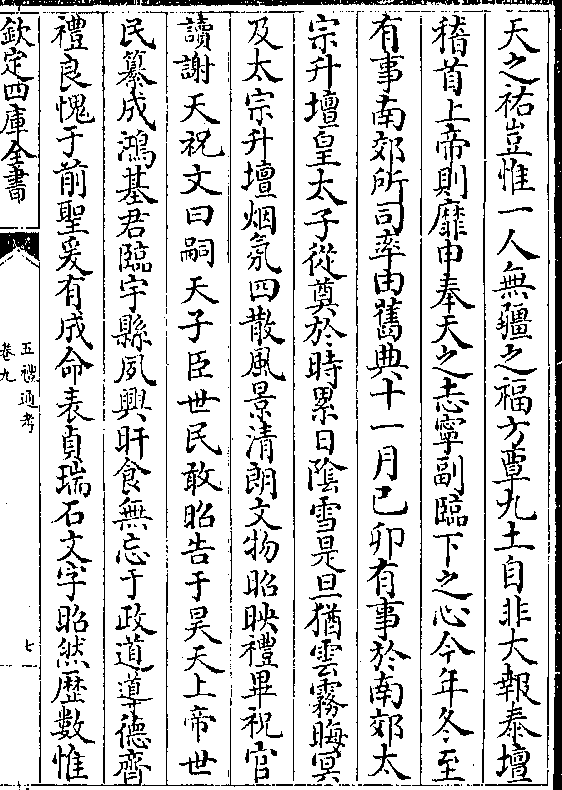 天之祐豈惟一人無疆之福方覃九土自非大報泰壇
稽首上帝則靡申奉天之志寧副臨下之心今年冬至
有事南郊所司率由舊典十一月己卯有事於南郊太
宗升壇皇太子從奠於時累日陰雪是旦猶雲霧晦冥
及太宗升壇烟氛四散風景清朗文物昭映禮畢祝官
讀謝天祝文曰嗣天子臣世民敢昭告于昊天上帝世
民纂成鴻基君臨宇縣夙興旰食無忘于政道導德齊
禮良愧于前聖爰有成命表貞瑞石文字昭然歷數惟
欽定四庫全書
五禮通考
卷九
七